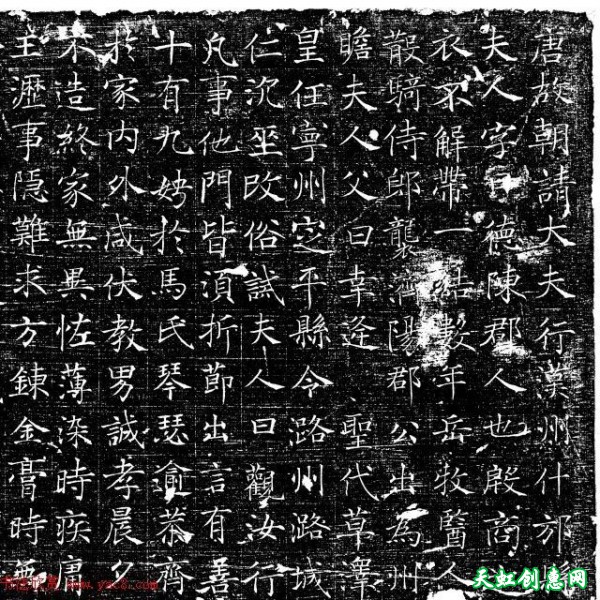 唐故朝請大夫行漢州什邡
夫人字德陳郡人也殷商
衣不解帶一結數年岳牧醫人
散騎侍郎襲濟陽郡公出為州
瞻夫人父曰幸逢聖代草澤
皇任寧州定平縣令潞州潞城
仁沉坐改俗試夫人曰觀汝行
凡事他門皆須折節出言有善
十有九娉於馬氏琴瑟逾恭齊
於家內外咸伏教男誠孝晨夕
不造終家無異恠薄染時疾唐
王瀝事隱難求方鍊金膏時無
天虹创意网